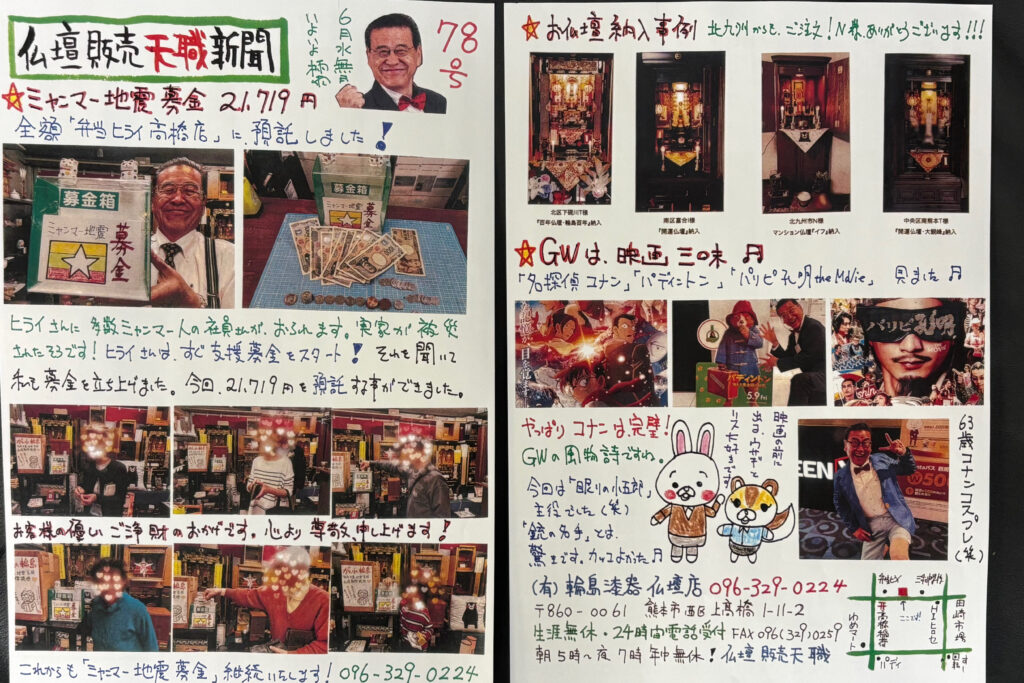 仏壇販売天職新聞
6月水無月
78号
☆ミャンマー地震募金 21,719円
全額「弁当ヒライ高橋店」に預託しました!
募金箱
ミャンマー地震
募金
募金箱
ミャンマー地震
募金
ヒライさんに多数ミャンマー人の社員さんが、おられます。実家が被災
されたそうです!ヒライさんは、すぐ支援募金をスタート!それを聞いて
私も募金を立ち上げました。今回、21,719円を預託する事ができました。
お客様の優しいご浄財のおかげです。心より尊敬申し上げます!
これからも「ミャンマー地震募金」継続いたします!096-329-0224
☆お仏壇納入事例 北九州からも、ご注文!N様、ありがとうございます!!!
北区下硯川T様
『百年仏壇・輪島百年』納入
南区富合I様
『開運仏壇』納入
北九州市N様
マンション仏壇『イフ』納入
中央区南熊本T様
『開運仏壇・大観峰』納入
☆GWは、映画三昧♬
「名探偵コナン」「パディントン」「パリピ孔明the Movie」見ました♬
パディントン
5.9 Fri
パリピ孔明
やっぱりコナンは、完璧!
GWの風物詩ですね。
今回は「眠りの小五郎」
主役でした(笑)
「銃の名手」とは、
驚きです。カッコよかった♬
映画の前に
出る、ウサギと
リス大好きです
63歳コナンコスプレ(笑)
(有)輪島漆器仏壇店 096-329-0224
〒860-0061 熊本市西区上高橋1-11-2
生涯無休・24時間電話受付 FAX096(329)0259
朝5時〜夜7時年中無休!仏壇販売天職
ここです!
高橋稲荷
ゆめマート
田崎市場